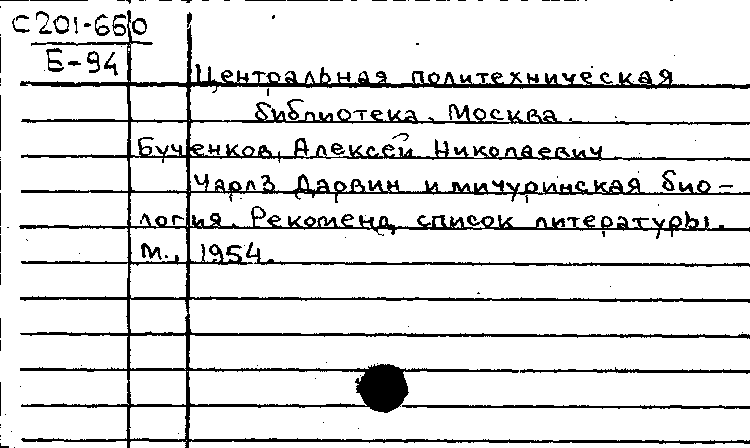 С 201-660
Б-94
Центральная политехническая
библиотека. Москва.
Бученков, Алексей Николаевич
Чарлз Дарвин и мичуринская био-
логия. Рекоменд. список литературы.
М., 1954.